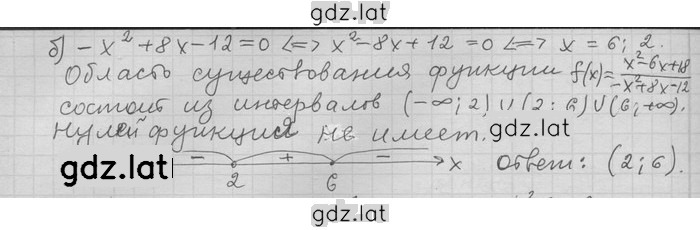 gdz.lat
б) -x²+8x-12=0 <=> x²-8x+12=0 <=> x=6; 2.
Область существования функции f(x)=(x²-6x+18)/(-x²+8x-12)
состоит из интервалов (-∞; 2)∪(2; 6)∪(6; +∞).
Нулей функция не имеет.
gdz.lat
gdz.lat
- + - x Ответ: (2; 6).
2 6
gdz.lat